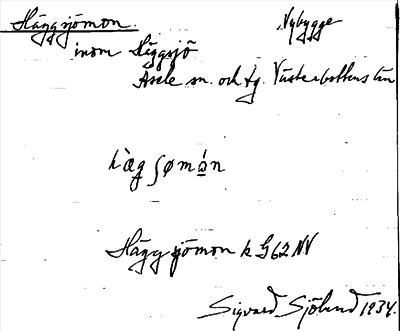 Häggsjömon. Nybygge
inom Häggsjö
Åsele sn. och tg. Västerbottens län
hæ̀gʃømón
Häggsjömon k G62NV
Sigvard Sjölund 1934.